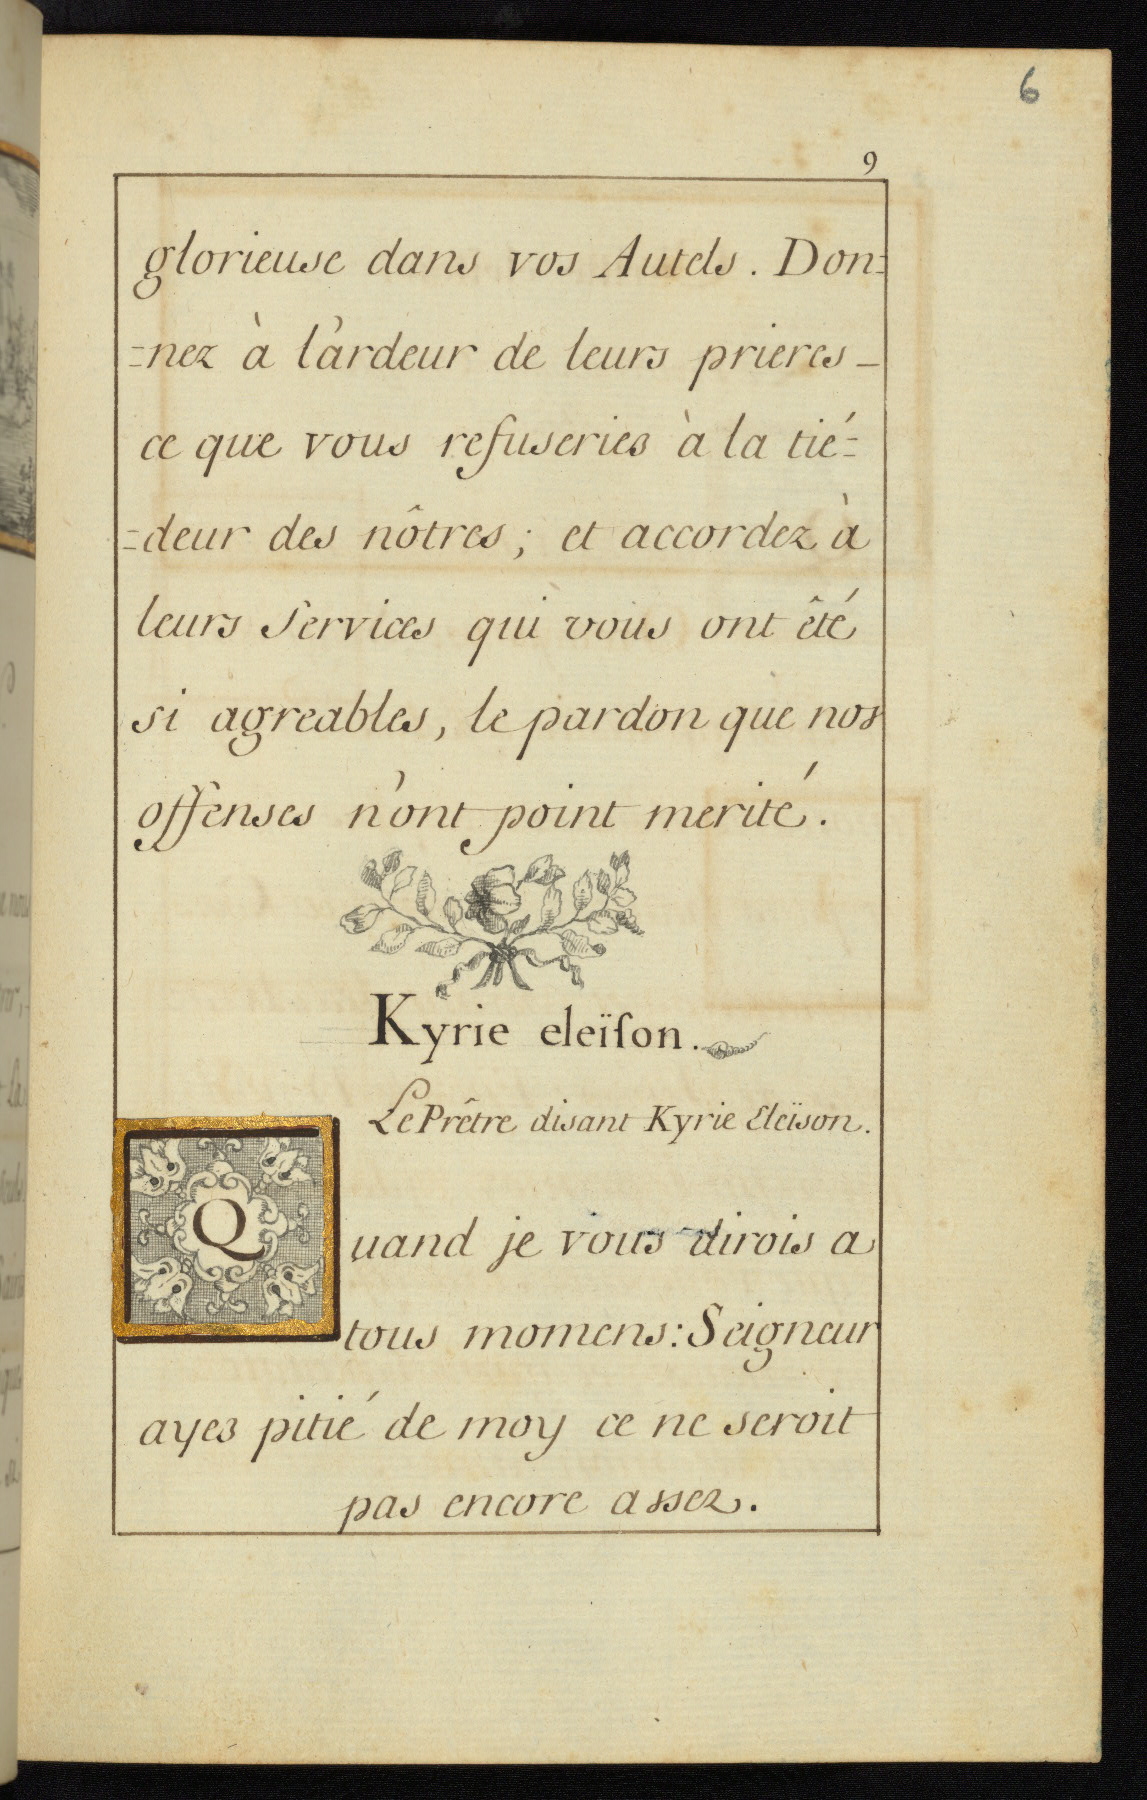 6
9
glorieuse dans vos Autels. Don=
=nez à l'ardeur de leurs prieres_
ce que vous refuseriez à la tié=
=deur des nôtres; et accordez à
leurs services qui vous ont êté
si agreables, le pardon que nos
offenses n'ont point merité.
Kyrie eleïson.
Le Prêtre disant Kyrie Eleïson.
Quand je vous dirois a
tous momens: Seigneur
ayez pitié de moy ce ne seroit
pas encore assez.